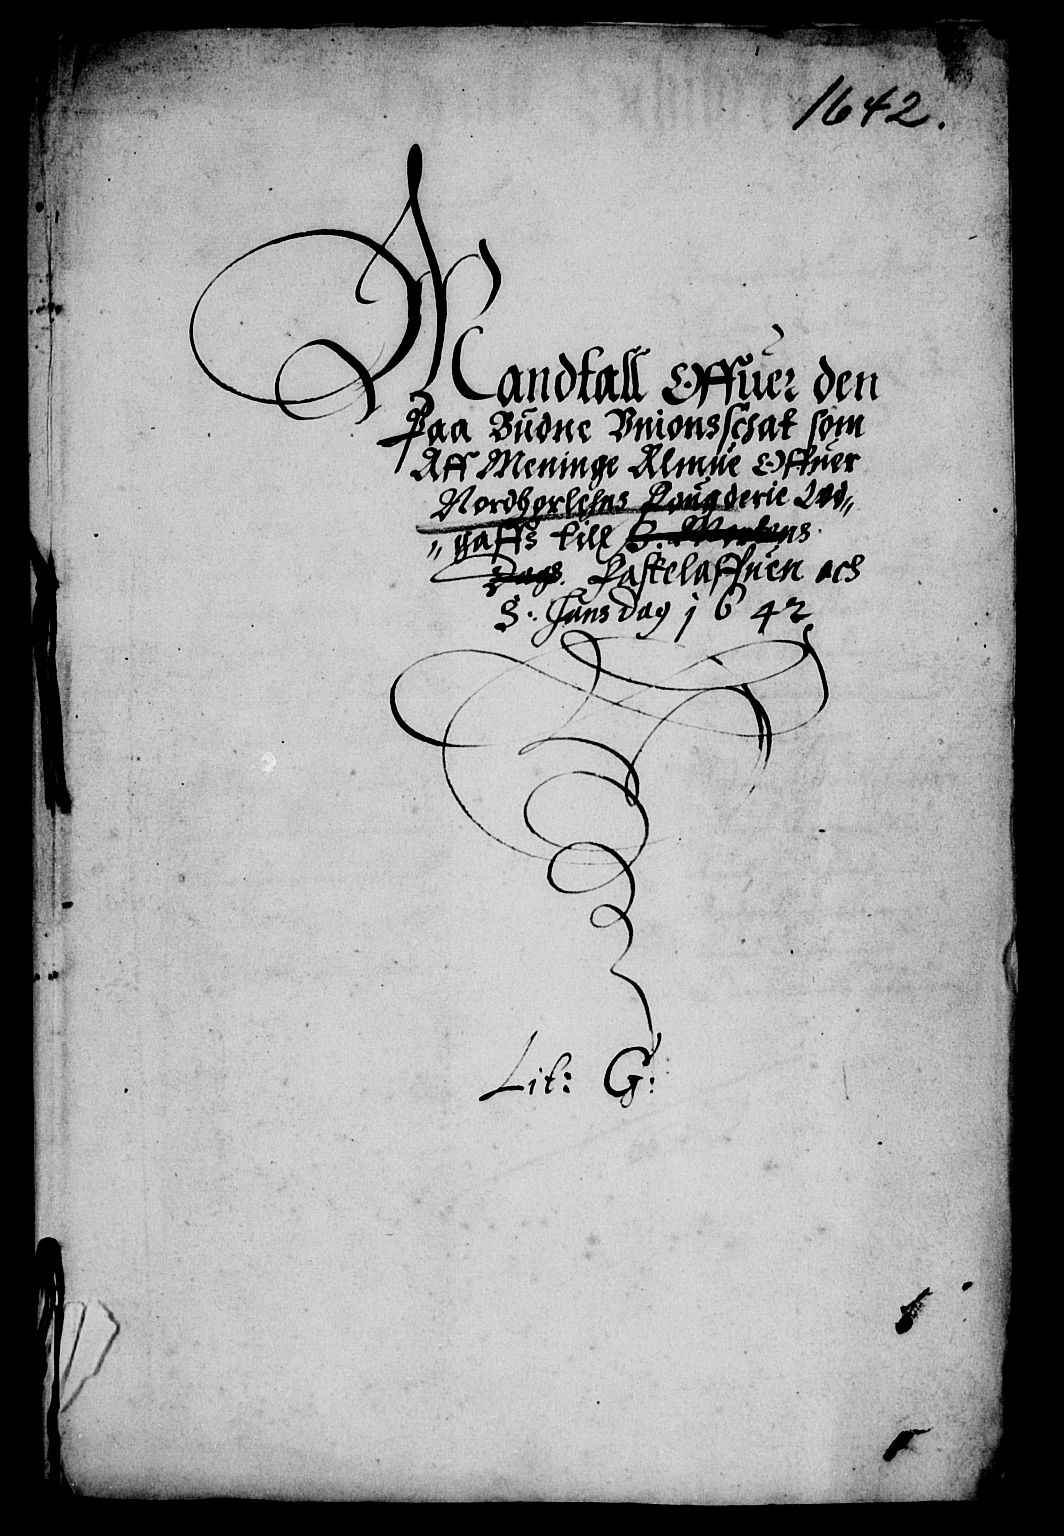 1642.
Mandtall Offuer den
Paa Budne Vnionsschat som
Aff Meninge Almue Offuer
Nordhorlehns Fougderie Vd„
„gaffs till S. Mortens
Dags. Fastelaffuen och
S. Hans dag 1642
Lit: G: